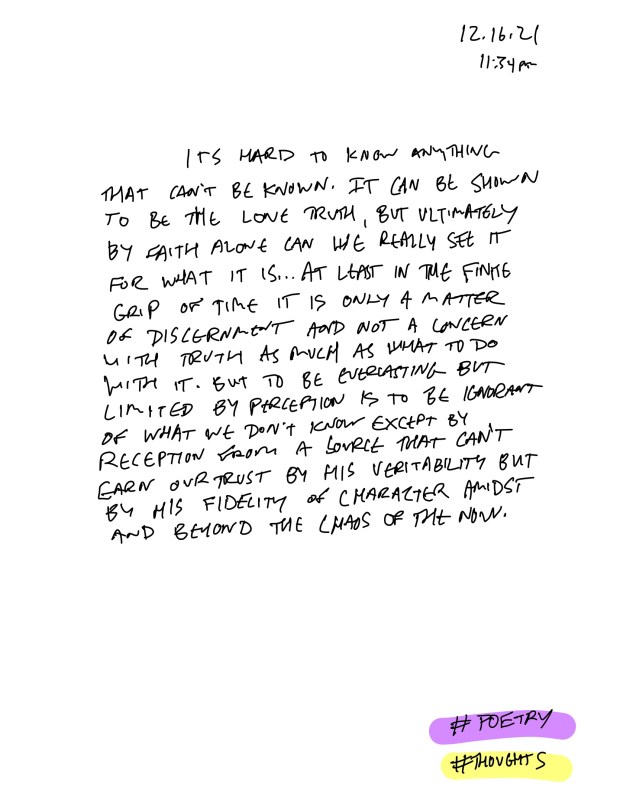 12.16.21
11:34pm
ITS HARD TO KNOW ANYTHING
THAT CAN'T BE KNOWN. IT CAN BE SHOWN
TO BE THE LONE TRUTH, BUT ULTIMATELY
BY FAITH ALONE CAN WE REALLY SEE IT
FOR WHAT IT IS... AT LEAST IN THE FINITE
GRIP OF TIME IT IS ONLY A MATTER
OF DISCERNMENT AND NOT A CONCERN
WITH TRUTH AS MUCH AS WHAT TO DO
WITH IT. BUT TO BE EVERLASTING BUT
LIMITED BY PERCEPTION IS TO BE IGNORANT
OF WHAT WE DON'T KNOW EXCEPT BY
RECEPTION FROM A SOURCE THAT CAN'T
EARN OUR TRUST BY HIS VERITABILITY BUT
BY HIS FIDELITY OF CHARACTER AMIDST
AND BEYOND THE CHAOS OF THE NOW.
# POETRY
#THOUGHTS